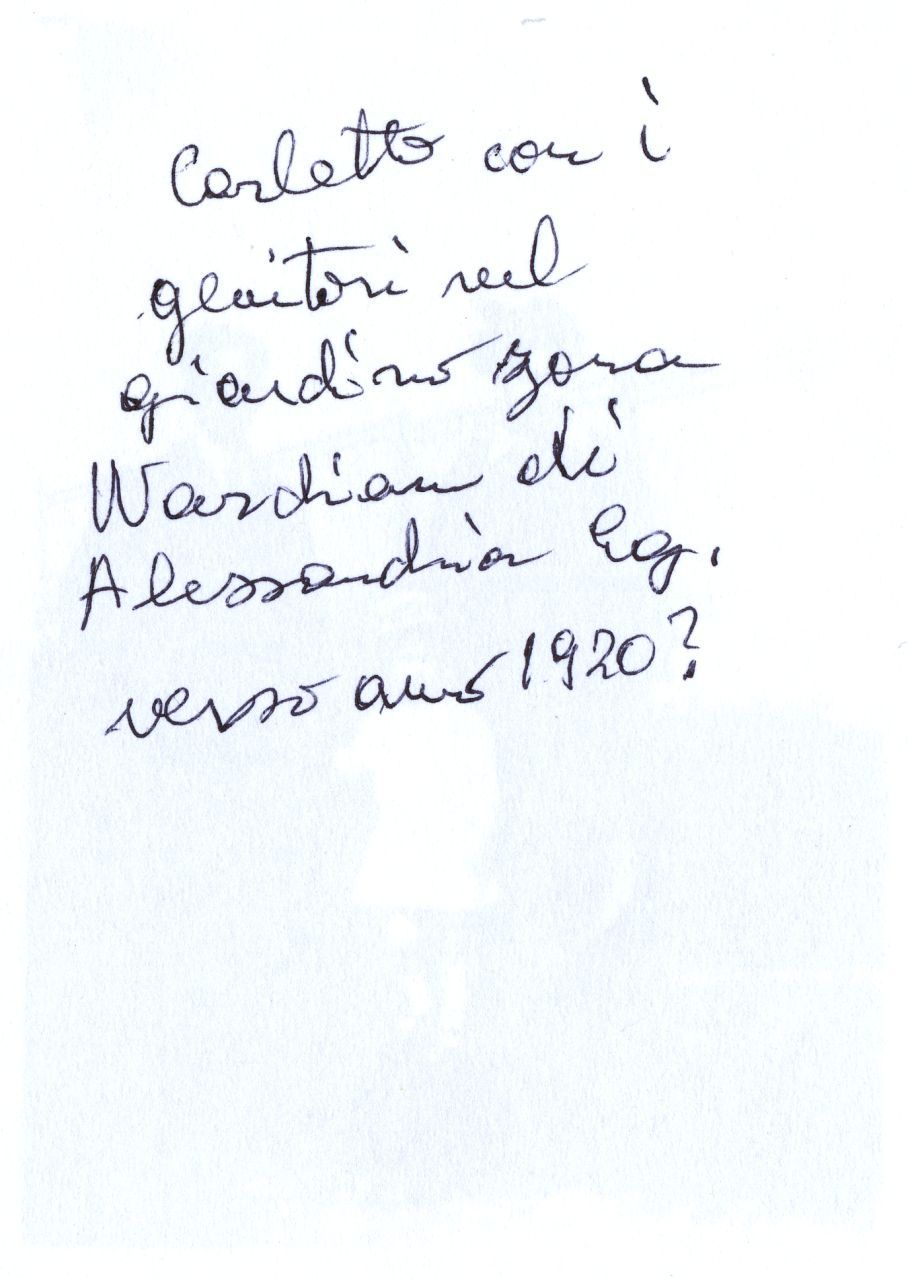 Carletto con i
genitori nel
giardino zona
Wardian di
Alessandria Eg.
verso anno 1920?